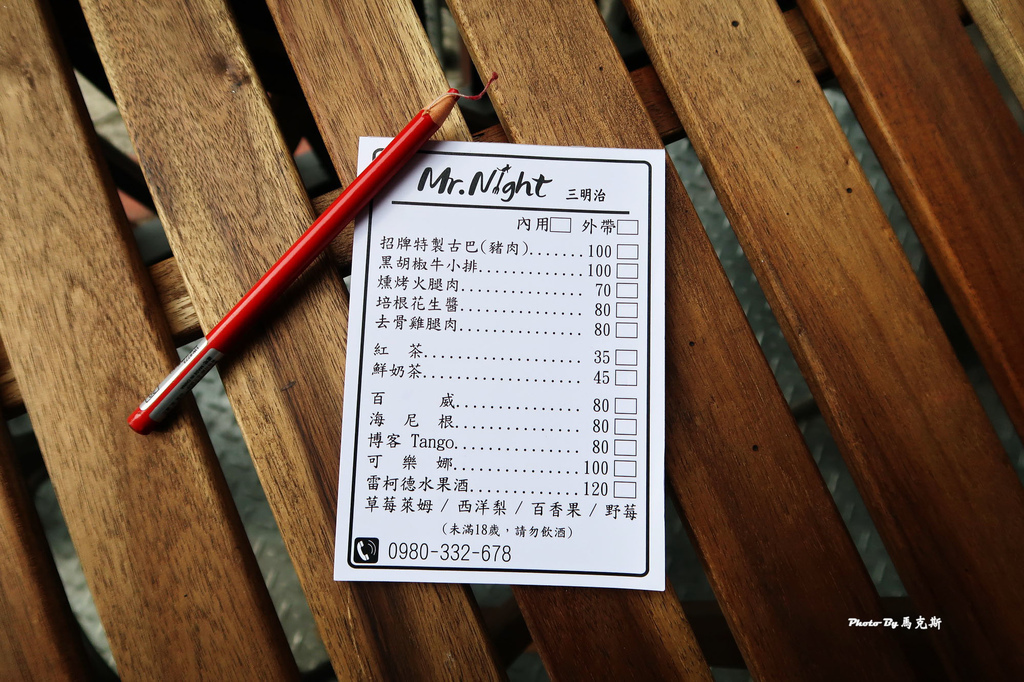 Mr. Night 三明治
內用□ 外帶□
招牌特製古巴(豬肉).......100□
黑胡椒牛小排.............100□
燻烤火腿肉............... 70□
培根花生醬............... 80□
去骨雞腿肉............... 80□
紅 茶................... 35□
鮮奶茶................... 45□
百 威............... 80□
海 尼 根............... 80□
博客 Tango............... 80□
可 樂 娜...............100□
雷柯德水果酒.............120□
草莓萊姆 / 西洋梨 / 百香果 / 野莓
(未滿18歲，請勿飲酒)
0980-332-678
Photo By 馬克斯